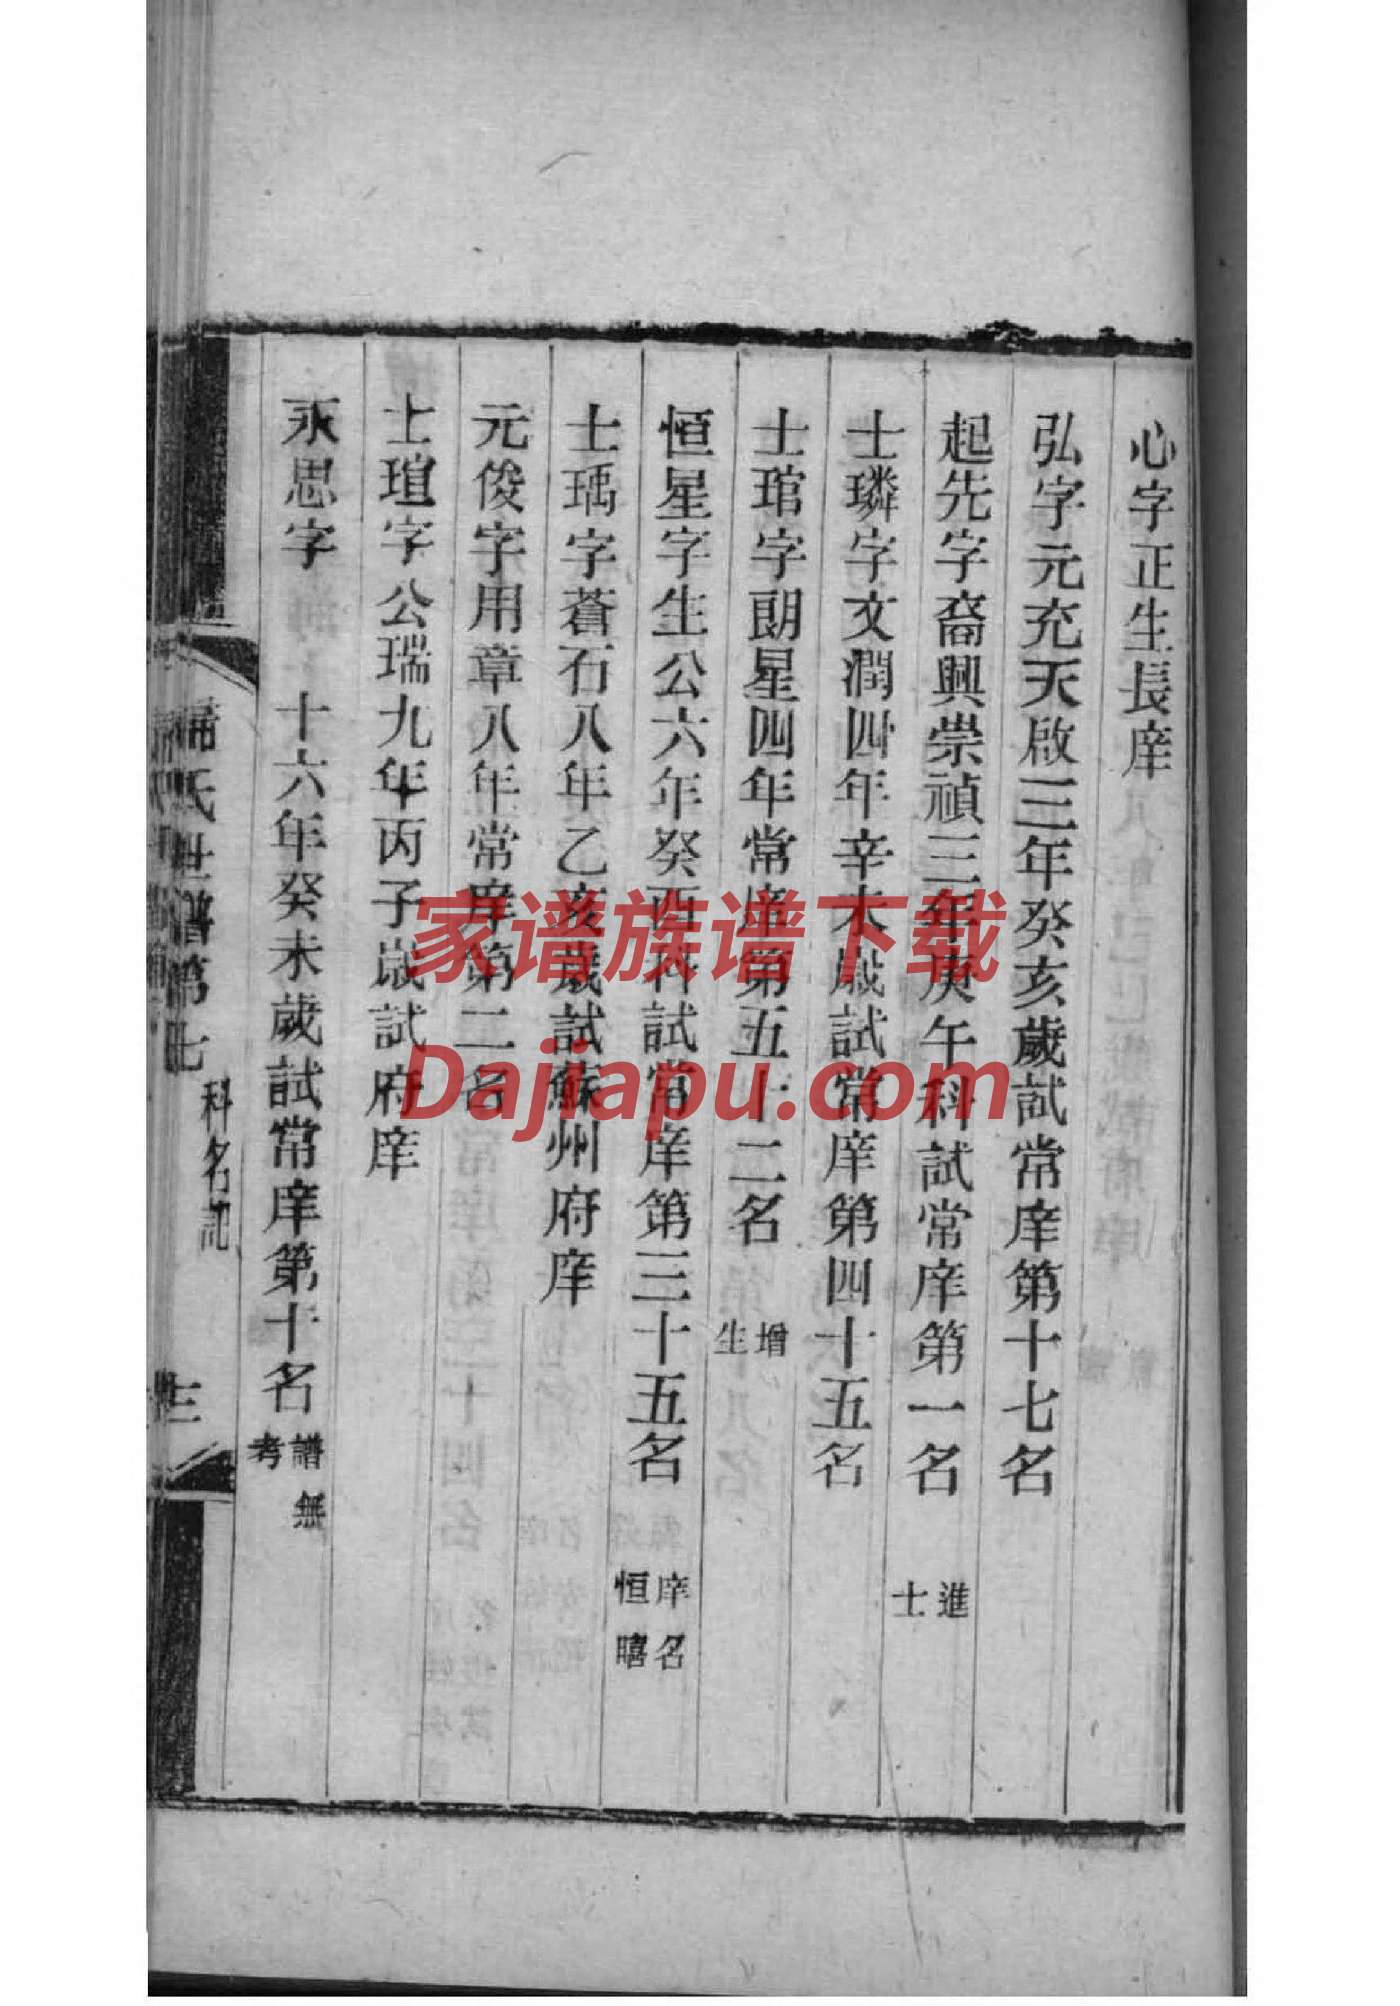 心字正生長庠
弘字元充天啟三年癸亥歲試常庠第十七名
起先字裔興崇禎三年庚午科試常庠第一名 進士
士璘字文潤四年辛未歲試常庠第四十五名
士琯字朗星四年常庠第五十二名 增生
恒星字生公六年癸酉科試常庠第三十五名 庠名恒曦
士瑀字蒼石八年乙亥歲試蘇州府庠
元俊字用章八年常庠第二名
士瑄字公瑞九年丙子歲試府庠
永思字 十六年癸未歲試常庠第十名 譜無考
氏世譜第七 科名記
家谱族谱下载
Dajiapu.com